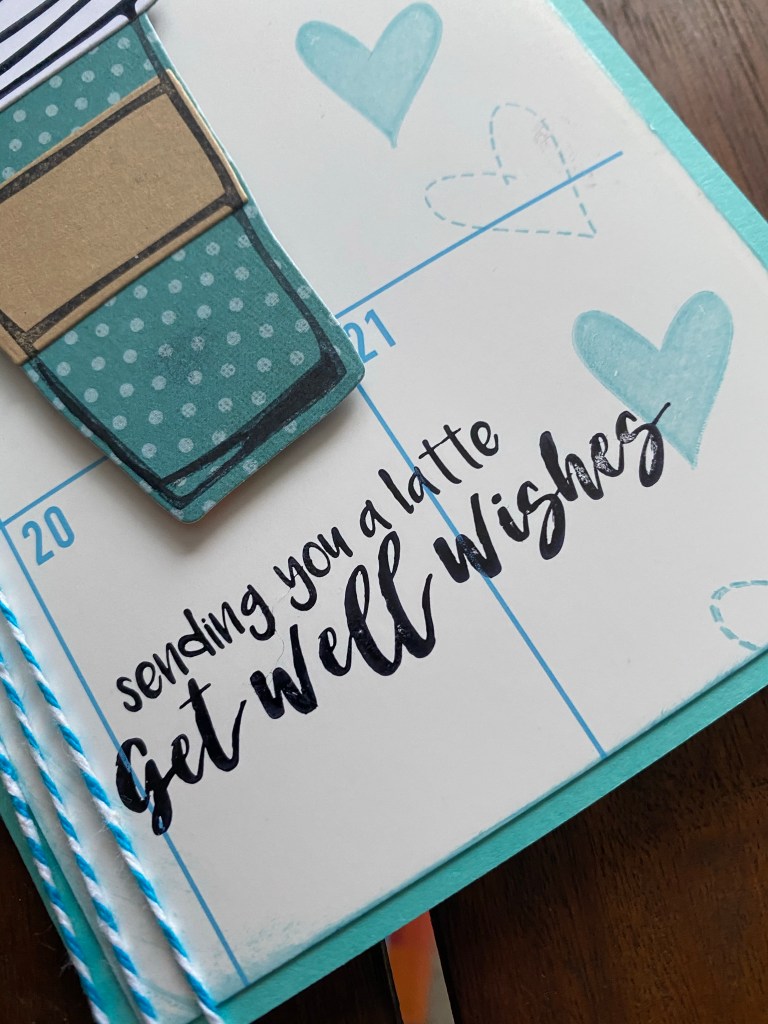 21
20
sending you a latte
Get Well Wishes